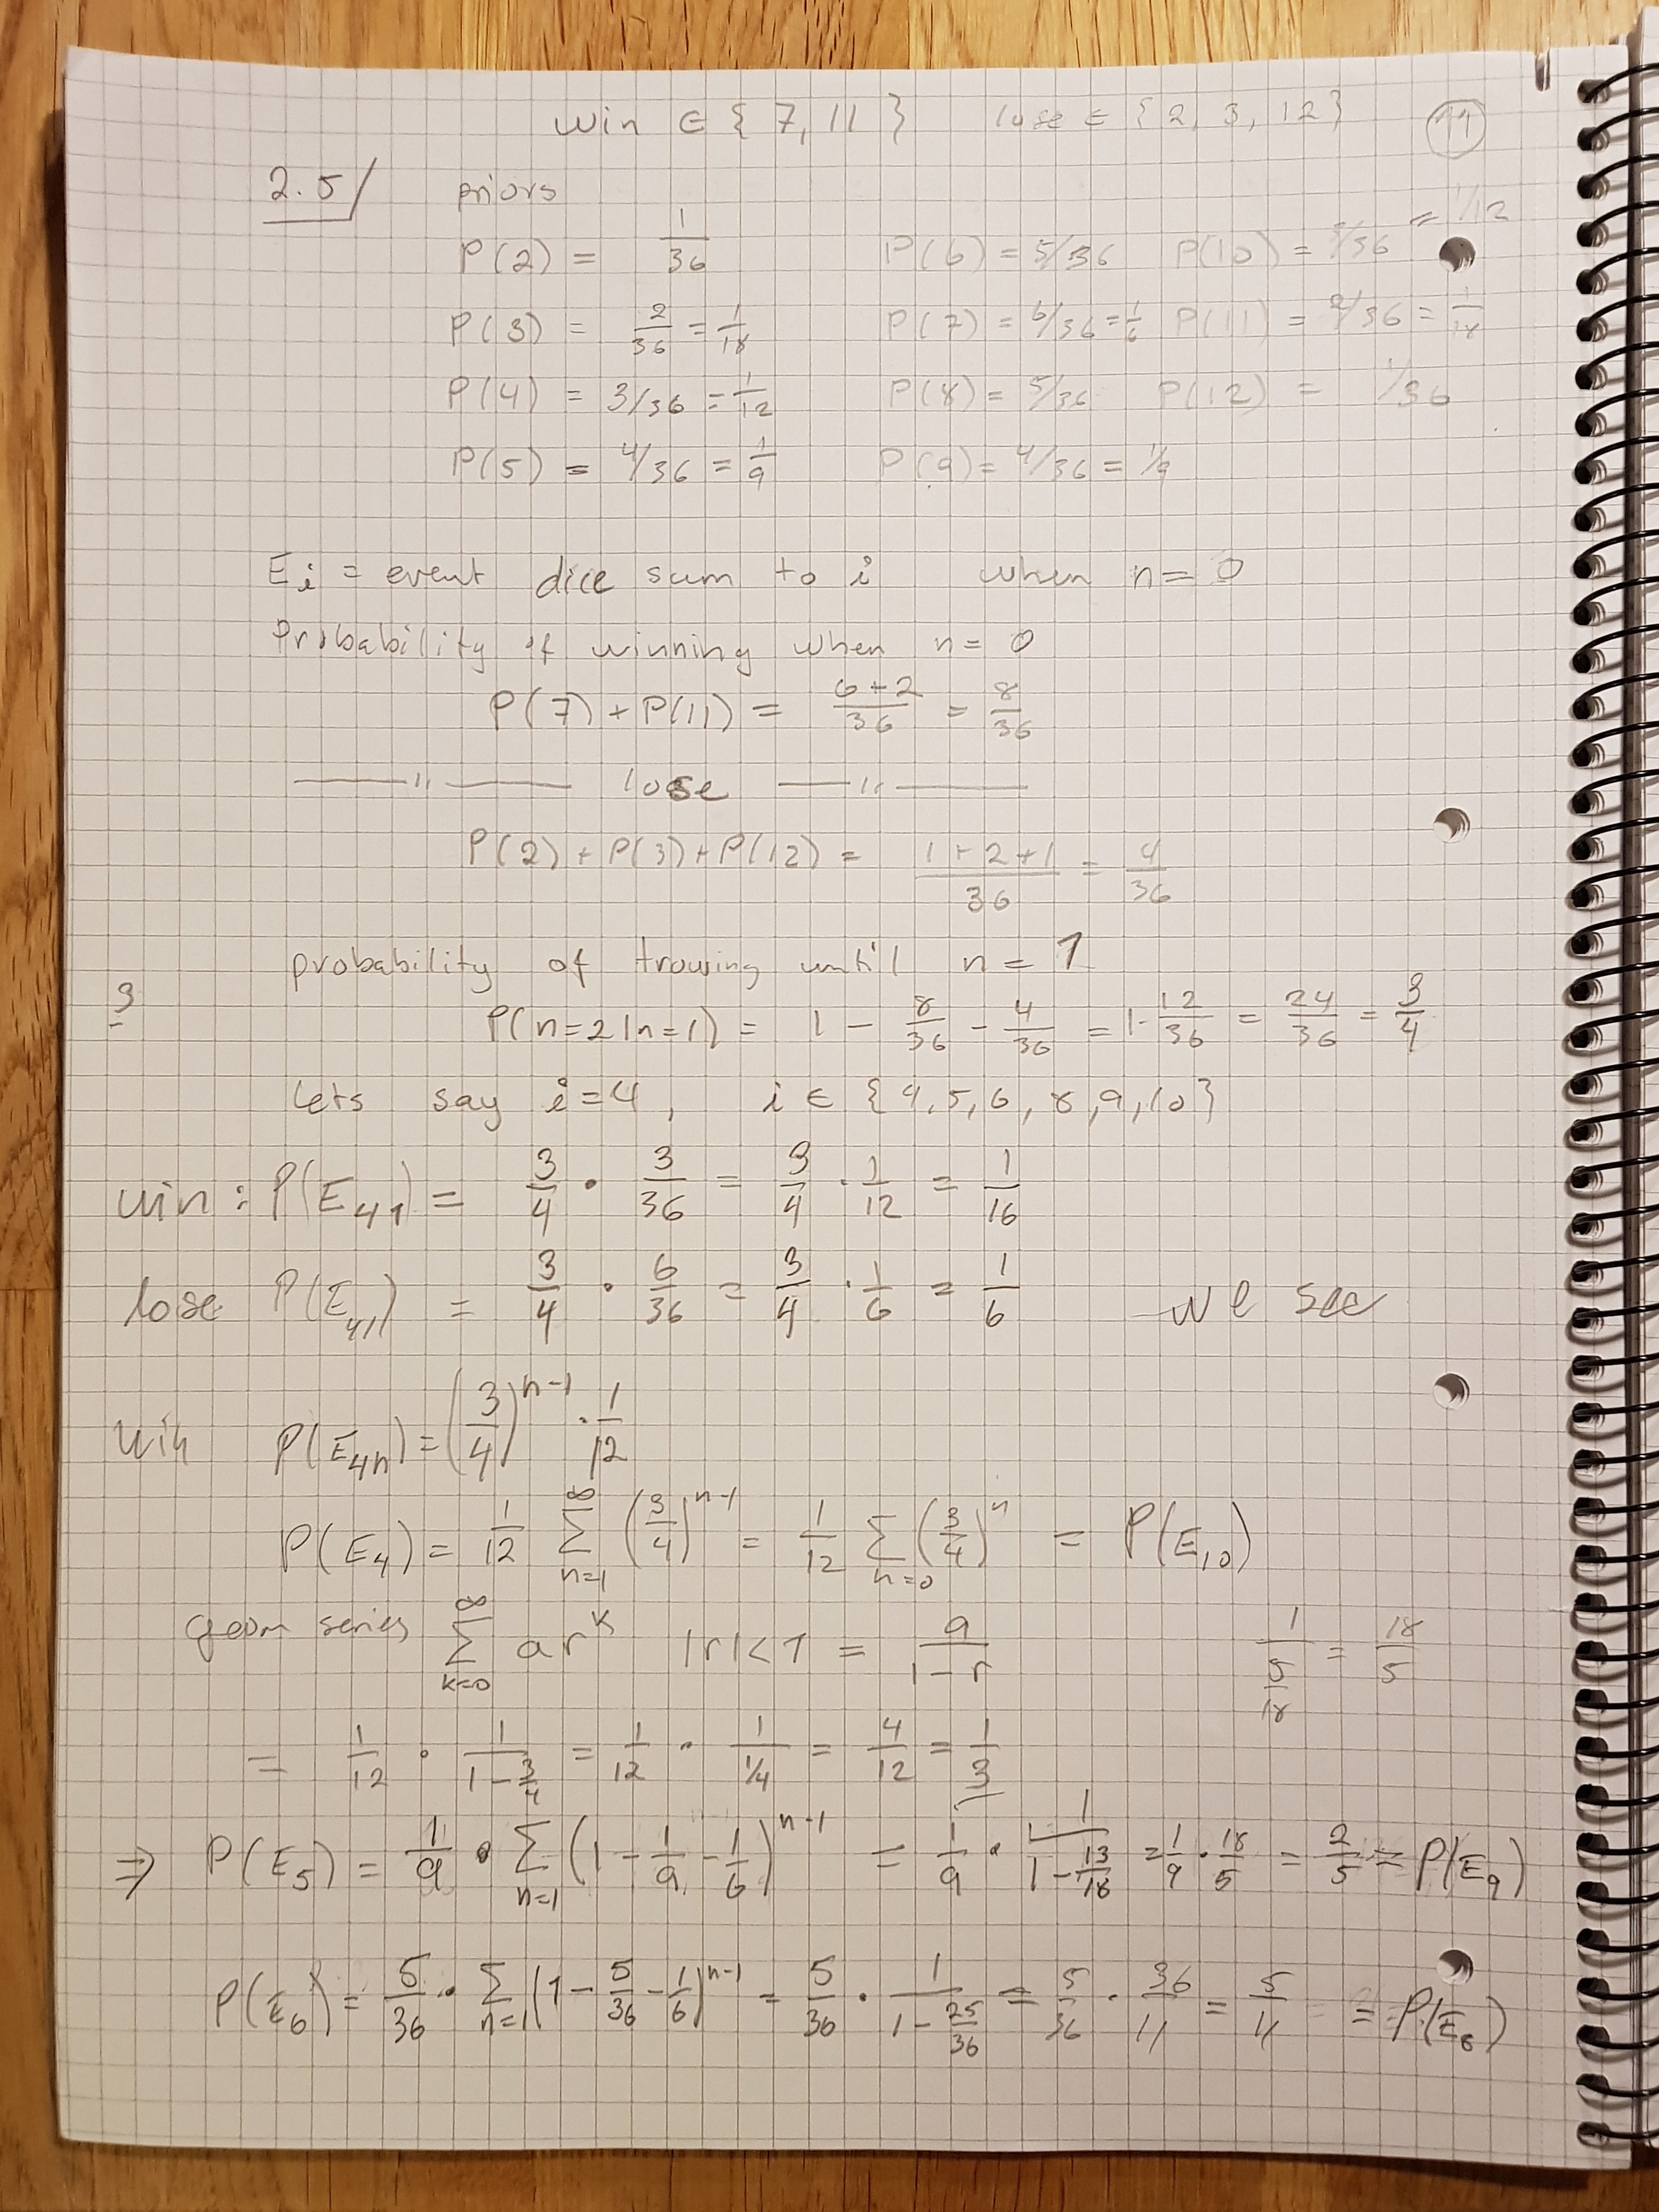 win ∈ {7, 11} lose ∈ {2, 3, 12} 11
2.5/ priors
P(2) = 1/36 P(6) = 5/36 P(10) = 3/36 = 1/12
P(3) = 2/36 = 1/18 P(7) = 6/36 = 1/6 P(11) = 2/36 = 1/18
P(4) = 3/36 = 1/12 P(8) = 5/36 P(12) = 1/36
P(5) = 4/36 = 1/9 P(9) = 4/36 = 1/9
E_i = event dice sum to i when n = 0
Probability of winning when n = 0
P(7) + P(11) = (6+2)/36 = 8/36
——"—— lose ——"——
P(2) + P(3) + P(12) = (1+2+1)/36 = 4/36
probability of trowing until n = 1
3 P(n=2|n=1) = 1 - 8/36 - 4/36 = 1 - 12/36 = 24/36 = 3/4
Lets say i=4, i ∈ {4,5,6,8,9,10}
win: P(E_41) = 3/4 · 3/36 = 3/4 · 1/12 = 1/16
lose: P(E_41) = 3/4 · 6/36 = 3/4 · 1/6 = 1/6 we see
win P(E_4n) = (3/4)^(n-1) · 1/12
P(E_4) = 1/12 ∑_{n=1}^∞ (3/4)^(n-1) = 1/12 ∑_{n=0} (3/4)^n = P(E_10)
geom series ∑_{k=0}^∞ ar^k |r|<1 = a/(1-r) 1/(5/18) = 18/5
= 1/12 · 1/(1-3/4) = 1/12 · 1/(1/4) = 4/12 = 1/3
⇒ P(E_5) = 1/9 · ∑_{n=1} (1 - 1/9 - 1/6)^(n-1) = 1/9 · 1/(1-13/18) = 1/9 · 18/5 = 2/5 = P(E_9)
P(E_6) = 5/36 · ∑_{n=1} (1 - 5/36 - 1/6)^(n-1) = 5/36 · 1/(1-25/36) = 5/36 · 36/11 = 5/11 = P(E_8)